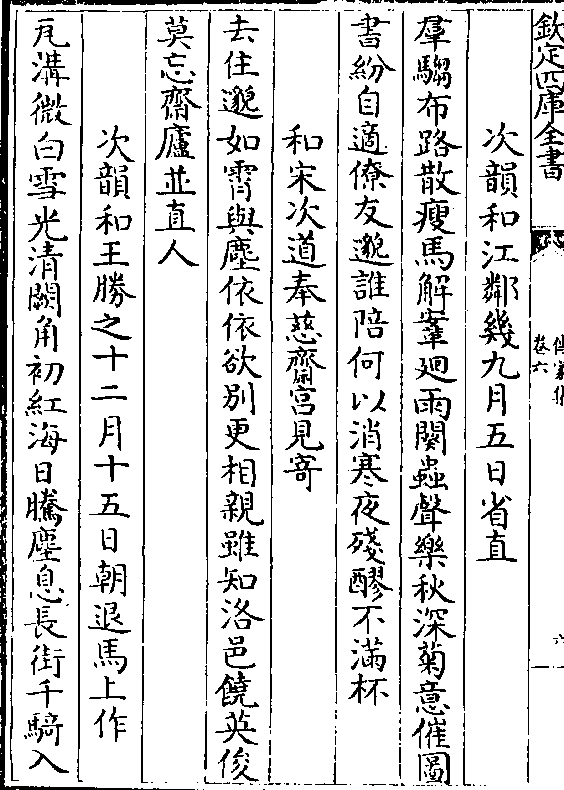 欽定四庫全書
傳家集
卷六
六
次韻和江鄰幾九月五日省直
羣騶布路散瘦馬解鞌廻雨闋蟲聲樂秋深菊意催圖
書紛自適僚友邈誰陪何以消寒夜殘醪不滿杯
和宋次道奉慈齋宮見寄
去住邈如霄與塵依依欲别更相親雖知洛邑饒英俊
莫忘齋廬並直人
次韻和王勝之十二月十五日朝退馬上作
瓦溝微白雪光清闕角初紅海日騰塵息長街千騎入